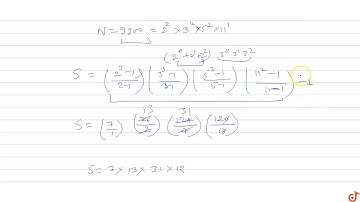 N = 9900 = 2² × 3² × 5² × 11¹
(2⁰+2¹+2²) 3⁰ 3¹ 3²
S = (2³-1/2-1) (3³-1/3-1) (5³-1/5-1) (11²-1/11-1) -1
13 31
S = (7/1) (26/2) (124/4) (120/10)
S = 7 × 13 × 31 × 12